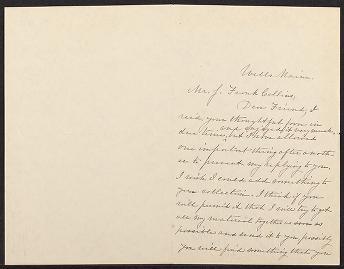 Wells Maine.
Mr. J. Frank Collins,
Dear Friend, I
read your thoughtful poem in
due time, and enjoyed it very much,
but I have allowed
one important thing after anoth-
er to prevent my replying to you.
I wish I could add something to
your collection. I think if you
will permit it that I will try to get
all my material together as soon as
possible and send it to you possibly
you will find something that you